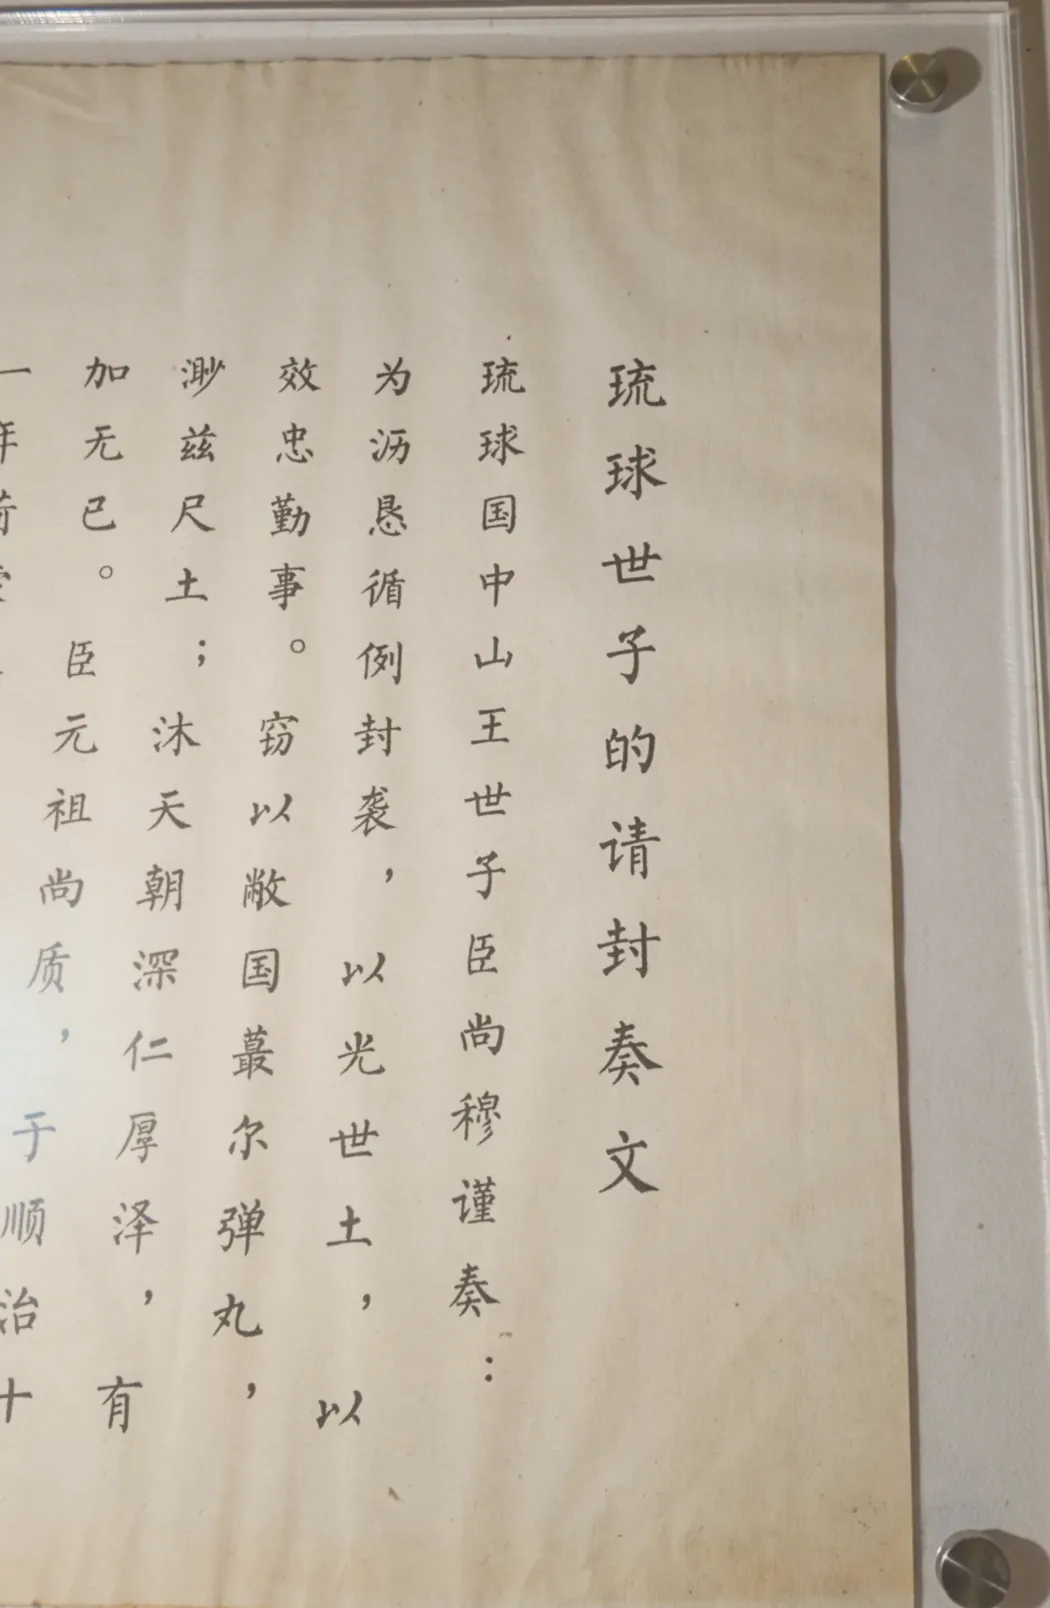 琉球世子的请封奏文
琉球国中山王世子臣尚穆谨奏：
为沥恳循例封袭，以光世土，以
效忠勤事。窃以敝国蕞尔弹丸，
渺兹尺土；沐天朝深仁厚泽，有
加无已。臣元祖尚质，于顺治十
一年